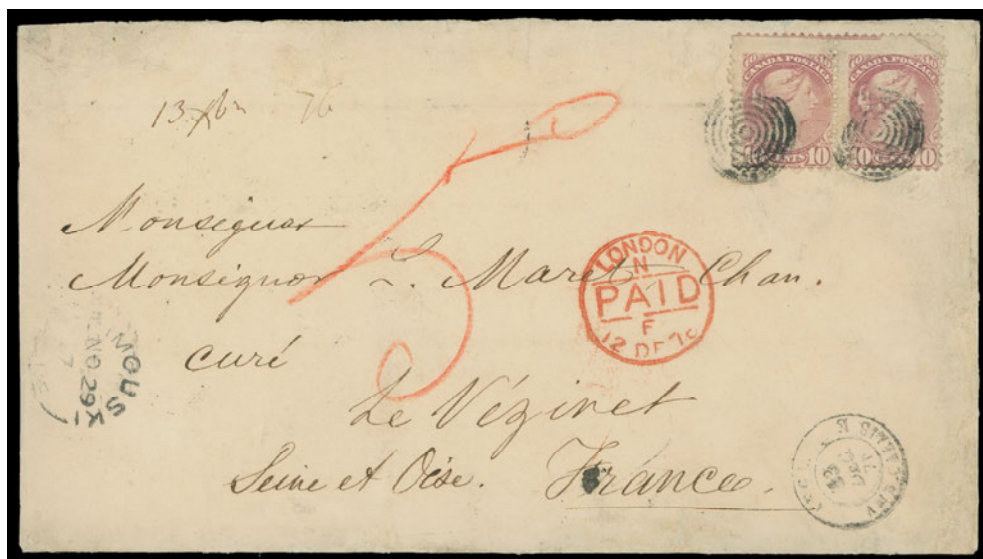 CANADA POSTAGE CANADA POSTAGE
10 CENTS 10 10 CENTS 10
13 76
5
Monsignor
Monsignor L. Maret Chan.
curé
Le Vézinet
Seine et Oise. France.
LONDON
N
PAID
F
12 DE 76
MOUS
NO 29
7